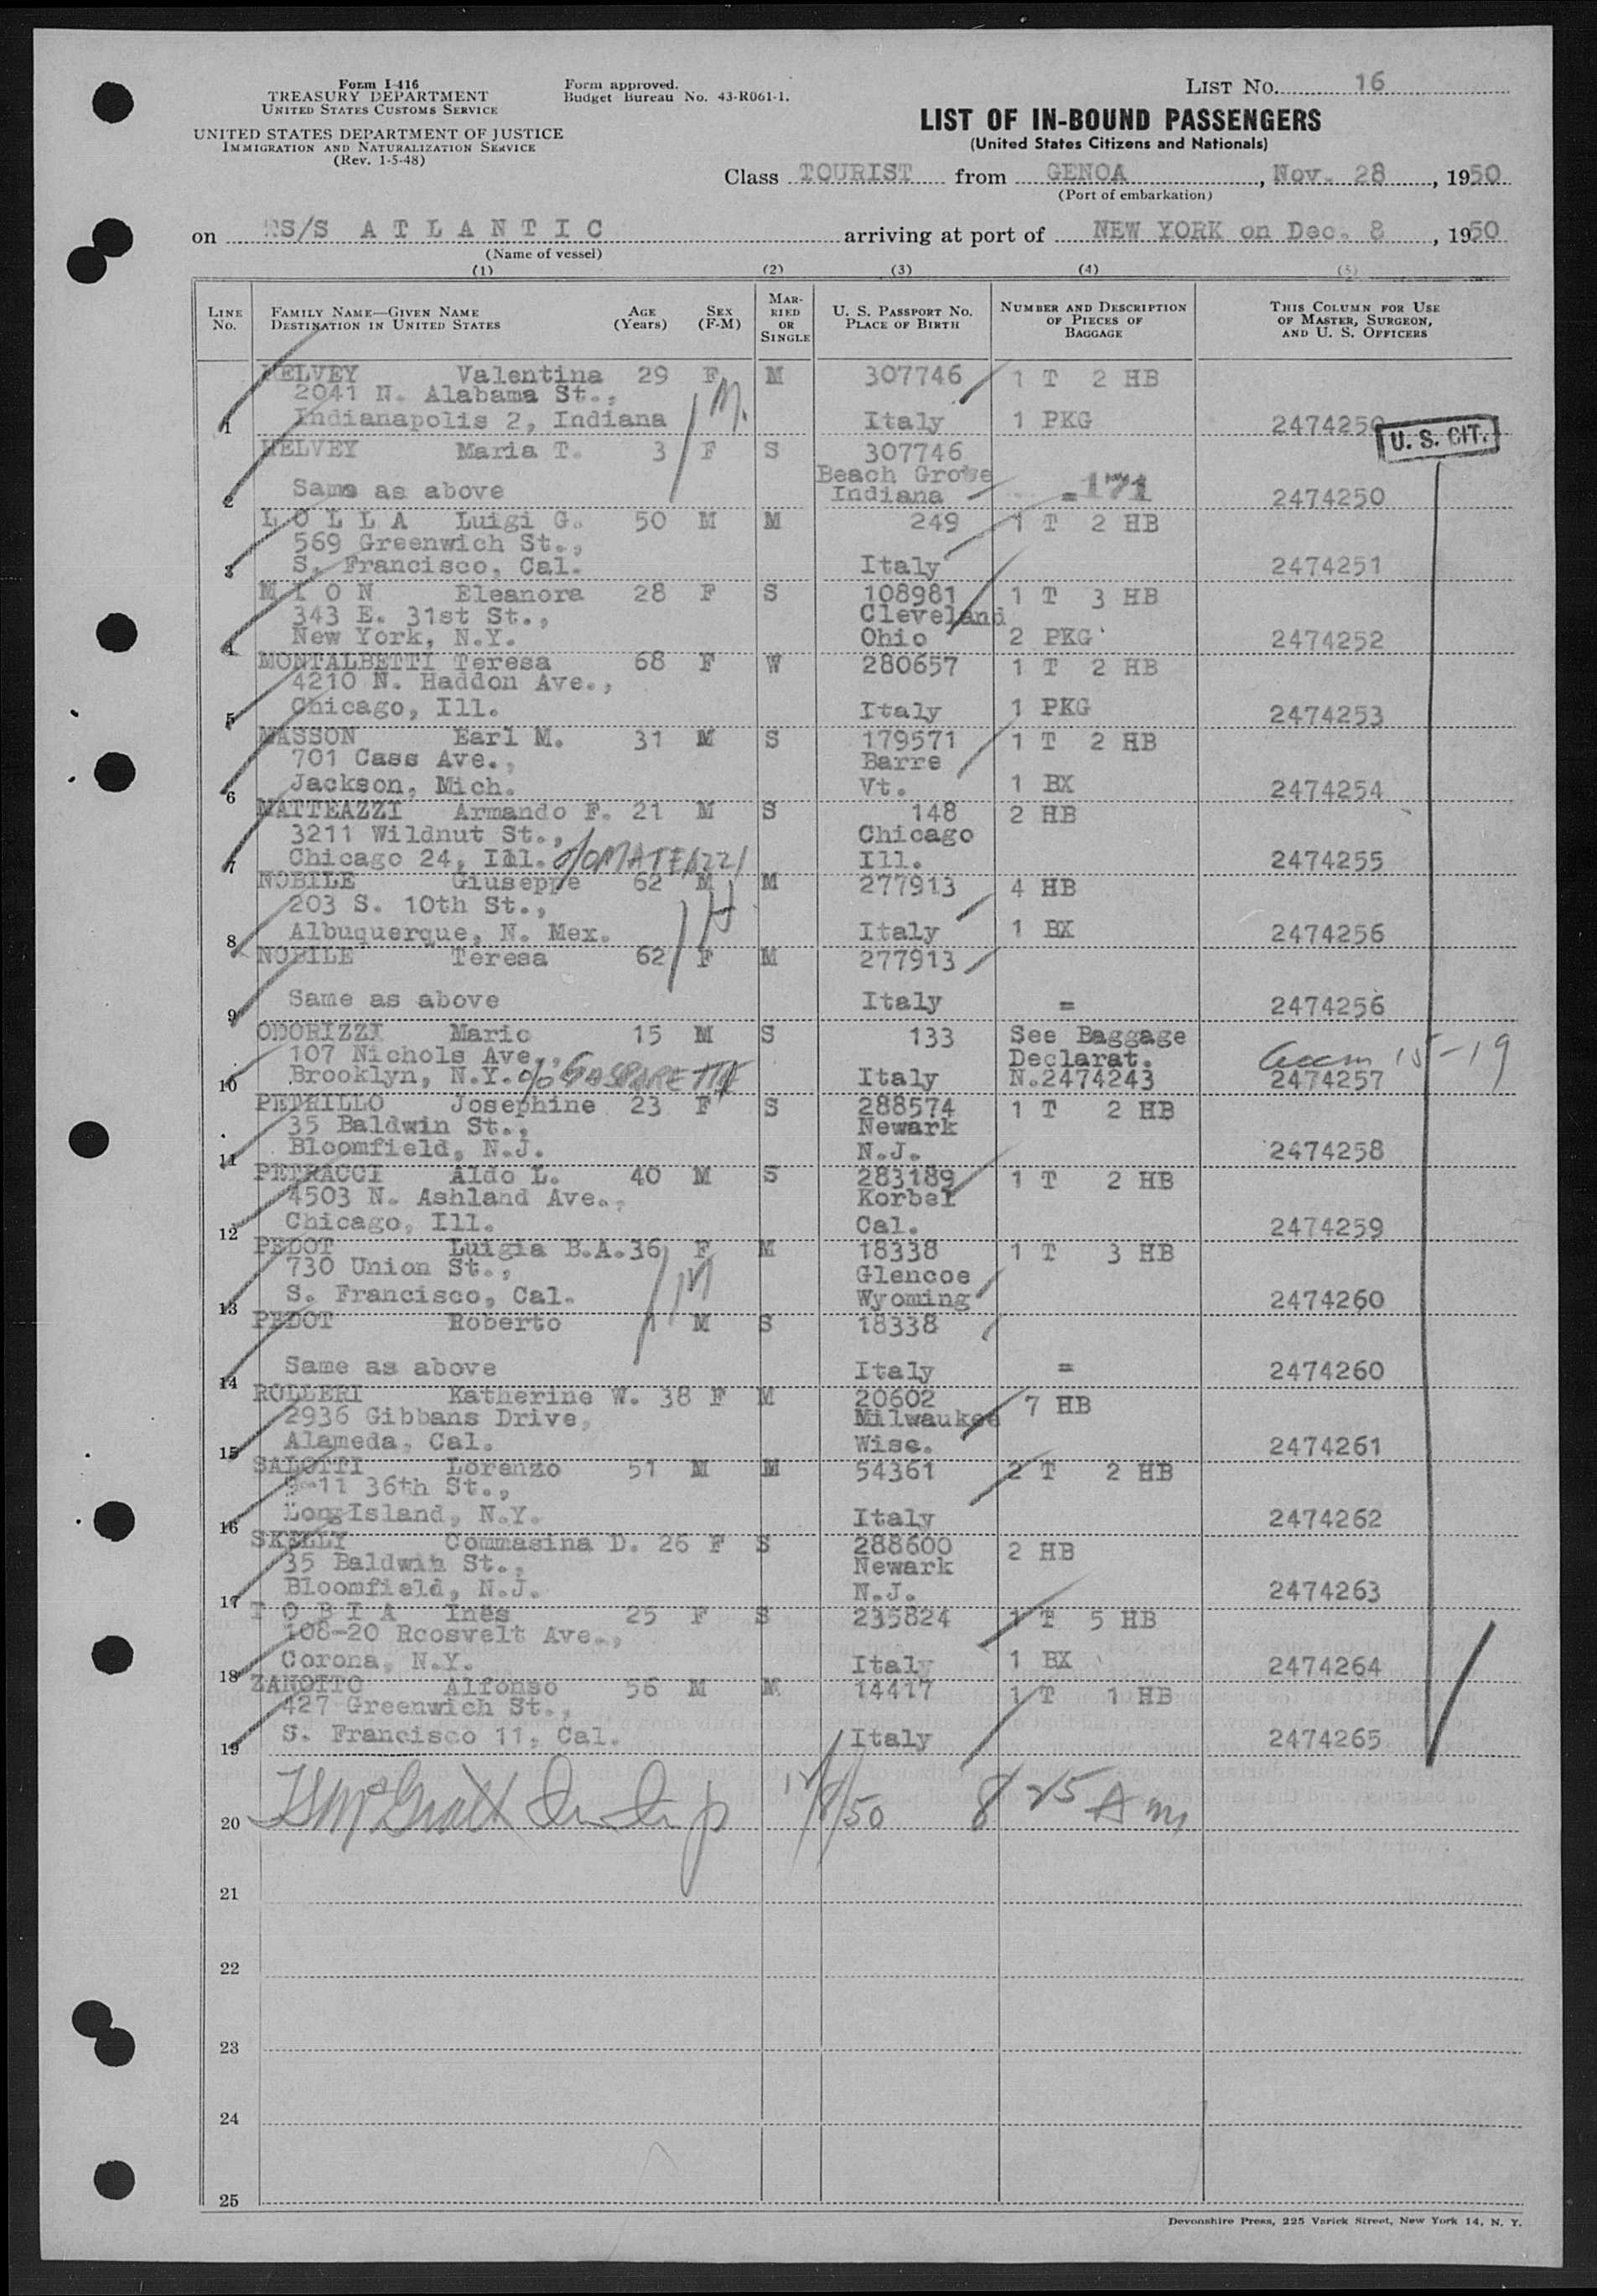 Form I-416
TREASURY DEPARTMENT
UNITED STATES CUSTOMS SERVICE
UNITED STATES DEPARTMENT OF JUSTICE
IMMIGRATION AND NATURALIZATION SERVICE
(Rev. 1-5-48)
Form approved.
Budget Bureau No. 43-R061-1.
LIST No. 16
LIST OF IN-BOUND PASSENGERS
(United States Citizens and Nationals)
Class TOURIST from GENOA, Nov. 28, 1950
(Port of embarkation)
on SS/S A T L A N T I C arriving at port of NEW YORK on Dec. 8, 1950
(Name of vessel)
(1) (2) (3) (4) (5)
LINE No.
FAMILY NAME—GIVEN NAME
DESTINATION IN UNITED STATES
AGE (Years)
SEX (F-M)
MARRIED OR SINGLE
U. S. PASSPORT No.
PLACE OF BIRTH
NUMBER AND DESCRIPTION OF PIECES OF BAGGAGE
THIS COLUMN FOR USE OF MASTER, SURGEON, AND U. S. OFFICERS
HELVEY Valentina 29 F M 307746 1 T 2 HB
2041 N. Alabama St.,
1 Indianapolis 2, Indiana M. Italy 1 PKG 2474250
U. S. CIT.
HELVEY Maria T. 3 F S 307746
Beach Grove
2 Same as above Indiana =171 2474250
L O L L A Luigi G. 50 M M 249 1 T 2 HB
569 Greenwich St.,
3 S. Francisco, Cal. Italy 2474251
M I O N Eleanora 28 F S 108981 1 T 3 HB
343 E. 31st St., Cleveland
4 New York, N.Y. Ohio 2 PKG 2474252
MONTALBETTI Teresa 68 F W 280657 1 T 2 HB
4210 N. Haddon Ave.,
5 Chicago, Ill. Italy 1 PKG 2474253
MASSON Earl M. 31 M S 179571 1 T 2 HB
701 Cass Ave., Barre
6 Jackson, Mich. Vt. 1 BX 2474254
MATTEAZZI Armando F. 21 M S 148 2 HB
3211 Wildnut St., Chicago
7 Chicago 24, Ill. c/o MATEAZZI Ill. 2474255
NOBILE Giuseppe 62 M M 277913 4 HB
203 S. 10th St., H
8 Albuquerque, N. Mex. Italy 1 BX 2474256
NOBILE Teresa 62 F M 277913
9 Same as above Italy = 2474256
ODORIZZI Mario 15 M S 133 See Baggage
107 Nichols Ave., Declarat.
10 Brooklyn, N.Y. c/o GASPARETTI Italy N.2474243 2474257
15-19
PETRILLO Josephine 23 F S 288574 1 T 2 HB
35 Baldwin St., Newark
11 Bloomfield, N.J. N.J. 2474258
PETRACCI Aldo L. 40 M S 283189 1 T 2 HB
4503 N. Ashland Ave., Korbel
12 Chicago, Ill. Cal. 2474259
PEDOT Luigia B.A. 36 F M 18338 1 T 3 HB
730 Union St., M Glencoe
13 S. Francisco, Cal. Wyoming 2474260
PEDOT Roberto 1 M S 18338
14 Same as above Italy = 2474260
ROLLERI Katherine W. 38 F M 20602 7 HB
2936 Gibbans Drive, Milwaukee
15 Alameda, Cal. Wisc. 2474261
SALOTTI Lorenzo 51 M M 54361 2 T 2 HB
5-11 36th St.,
16 Long Island, N.Y. Italy 2474262
SKELLY Commasina D. 26 F S 288600 2 HB
35 Baldwin St., Newark
17 Bloomfield, N.J. N.J. 2474263
T O B I A Ines 25 F S 235824 1 T 5 HB
108-20 Roosvelt Ave.,
18 Corona, N.Y. Italy 1 BX 2474264
ZANOTTO Alfonso 56 M M 14417 1 T 1 HB
427 Greenwich St.,
19 S. Francisco 11, Cal. Italy 2474265
20 McGrath 12/8/50 8 25 Am
21
22
23
24
25
Devonshire Press, 225 Varick Street, New York 14, N. Y.